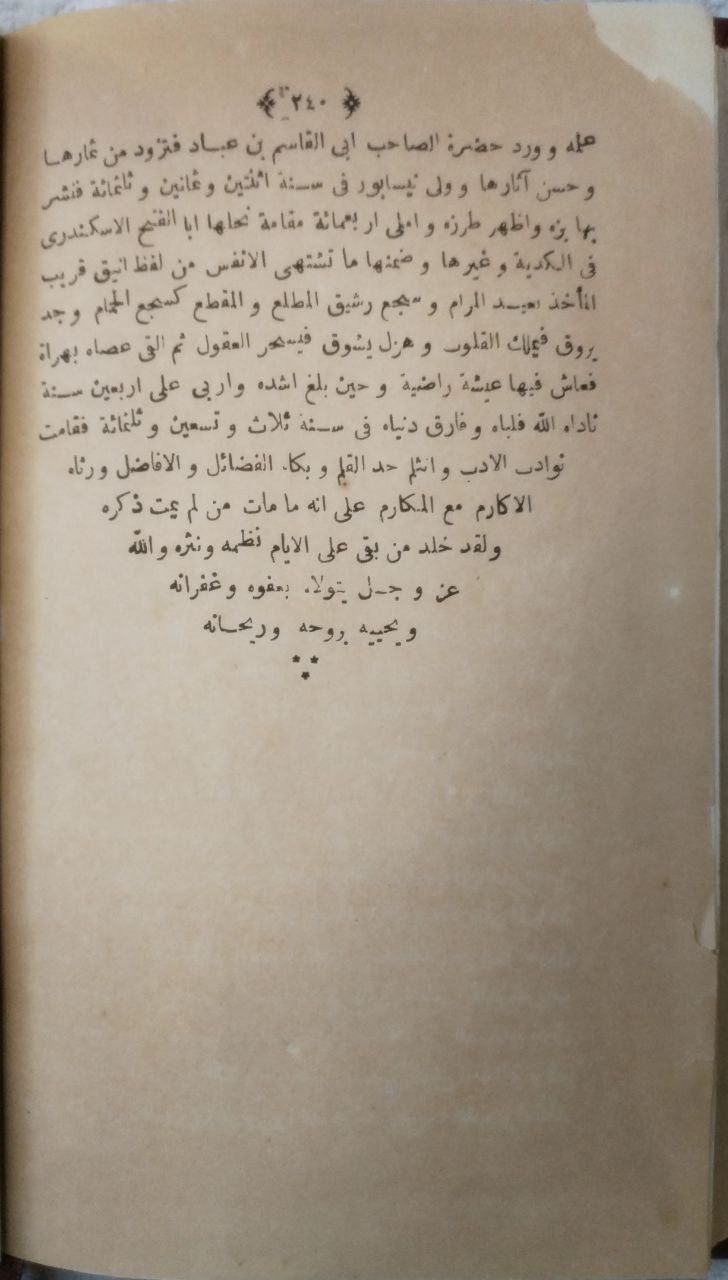 ﴿ ٢٤٠ ﴾
علمه و ورد حضرة الصاحب ابى القاسم بن عبـاد فتزود من ثمارهـا
و حسن آثارها و ولى نيسابور فى سـنة اثنتين و ثمانين و ثلثمائة فنشر
بها بزه واظهر طرزه و املى اربعمائة مقامة نحلها ابا الفتح الاسكندرى
فى الكدية و غيرها و ضمنها ما تشتهى الانفس من لفظ انيق قريب
المأخذ بعيـد المرام و سجع رشيق المطلع و المقطع كسجع الحمام و جد
يروق فيملك القلوب و هزل يشوق فيسحر العقول ثم القى عصاه بهراة
فعاش فيها عيشة راضية و حين بلغ اشده واربى على اربعين سـنة
ناداه الله فلباه و فارق دنياه فى سـنة ثلاث و تسعين و ثلثمائة فقامت
نوادب الادب و انثلم حد القلم و بكاه الفضائل و الافاضل و رثاه
الاكارم مع المكارم على انه ما مات من لم يمت ذكره
و لقد خلد من بقى على الايام نظمه و نثره و الله
عز و جـل يتولاه بعفوه و غفرانه
و يحييه بروحه و ريحـانه